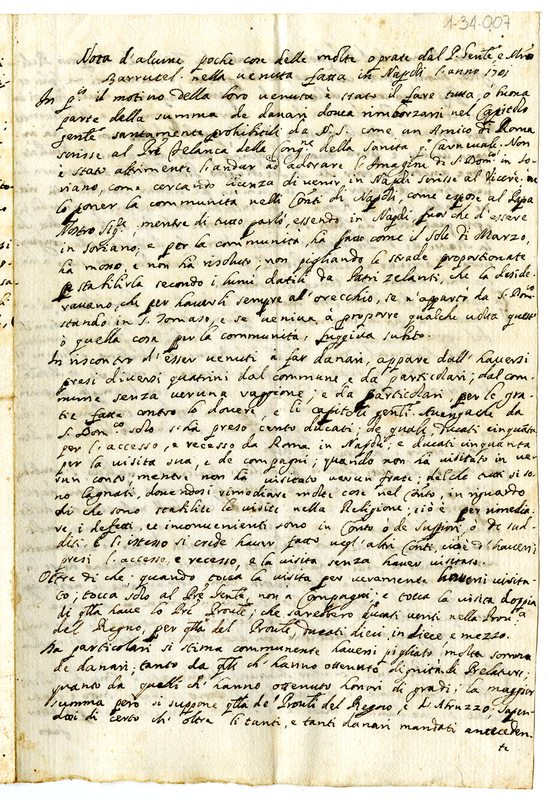 1-34.007
Nota d'alcune poche cose delle molte oprate dal P. Gente e Mro
Barrucel nella venuta fatta in Napoli l'anno 1701
In pis il motivo della loro venuta è stato il fare tutta, ò buona
parte della summa de danari doveva rimborzarsi nel Capitolo
gentle santamente prohibitoli da N.S. come un Amico di Roma
scrisse al Pre Celanca della Congne della Sanità p Carnevali. Non
è stato altrimente l'andar ad adorare l'Imagine di S. Domco in So-
riano, come cercando licenza di venir in Napoli scrisse al Vicerè: nè
lo poner la communità nelli Conti di Napoli, come espose al Papa
Nostro Sigre, mentre di tutto parlò, essendo in Napoli, fuor che d'essere
in Soriano, e per la communità, ha fatto come il Sole di Marzo,
ha mosso, e non ha risoluto; non pigliando le strade proportionate
p stabilirla secondo i lumi datili da Patri zelanti, che la deside-
ravano, che per haverli sempre all'orecchio, se n'apparto da S. Domco
stando in S. Tomaso, e se veniva à proporre qualche volta questo
ò quella cosa per la communità, fuggiva subito.
In riscontro d'esser venuti à far danari, appare dall'haversi
presi diversi quatrini dal commune e da particolari; dal com-
mune senza veruna raggione; e da particolari, per le gra-
tie fatte contro lo dovere, e li capitoli genli. Avengache da
S. Domco solo s'hà preso cento ducati; de quali ducati cinquanta
per l'accesso, e recesso da Roma in Napoli, e ducati cinquanta
per la visita sua, e de compagni; quando non hà visitato in ve-
sun conto; mentre non hà visitato verun frate; del che tutti si so-
no lagnati, dovendosi rimediare molte cose nel Conto, in riguardo
di che sono stabilite le visite nella Religione; ciò è per rimedia-
re, i defetti, e inconvenienti sono in Conto ò de Suppri, ò de sud-
diti. E l'istesso si crede haver fatto negl'altri Conti, cioè d'haversi
presi l'accesso, e recesso, e la visita senza haver visitato.
Oltre di che, quando tocca la visita per veramente haversi visita-
to; tocca solo al Pre Gente, non a Compagni; e tocca la visita doppia
di qlla have lo Pre Provle; che sarebbero ducati venti nella Provca
del Regno, per qlla del Provle, ducati dieci, in diece e mezzo.
Da particolari si stima communente haversi pigliato molta somma
de danari; tanto da qlli ch'hanno ottenuto dignità di Prelature;
quanto da quelli ch'hanno ottenuto honori di gradi; la maggior
summa però si suppone qlla de' Provli del Regno, e d'Abruzzo; sapen-
dosi di certo ch'oltre li tanti, e tanti danari mandati anteceden-
te